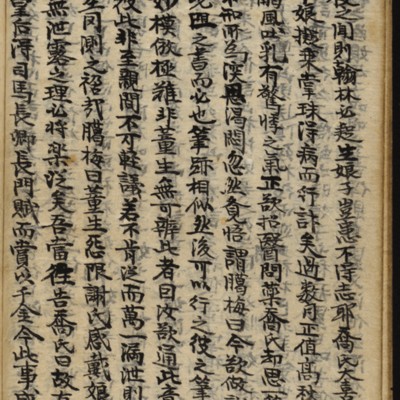 之聞則翰林必起生娘子豈患不得志耶喬氏大喜
娘搬來掌珠得病而行計矣過數月正值高秋
風吐乳有驚悸之氣正欲招醫問藥喬氏却思一
而思渴悶忽然負悟謂臘梅曰今欲做
呪咀之書而必也筆跡相似然後可以行之彼之筆
妙模倣極難非董生無可辨此者曰汝欲通此意
彼此非至親間不可輕議若不肯從而萬一漏泄則
生同惻之招却臘梅曰董生怨限謝氏感戴娘
無泄露之理必將樂從矣吾當往告喬氏曰故
皇后得司馬長卿長門賦而賞以千金今此事成